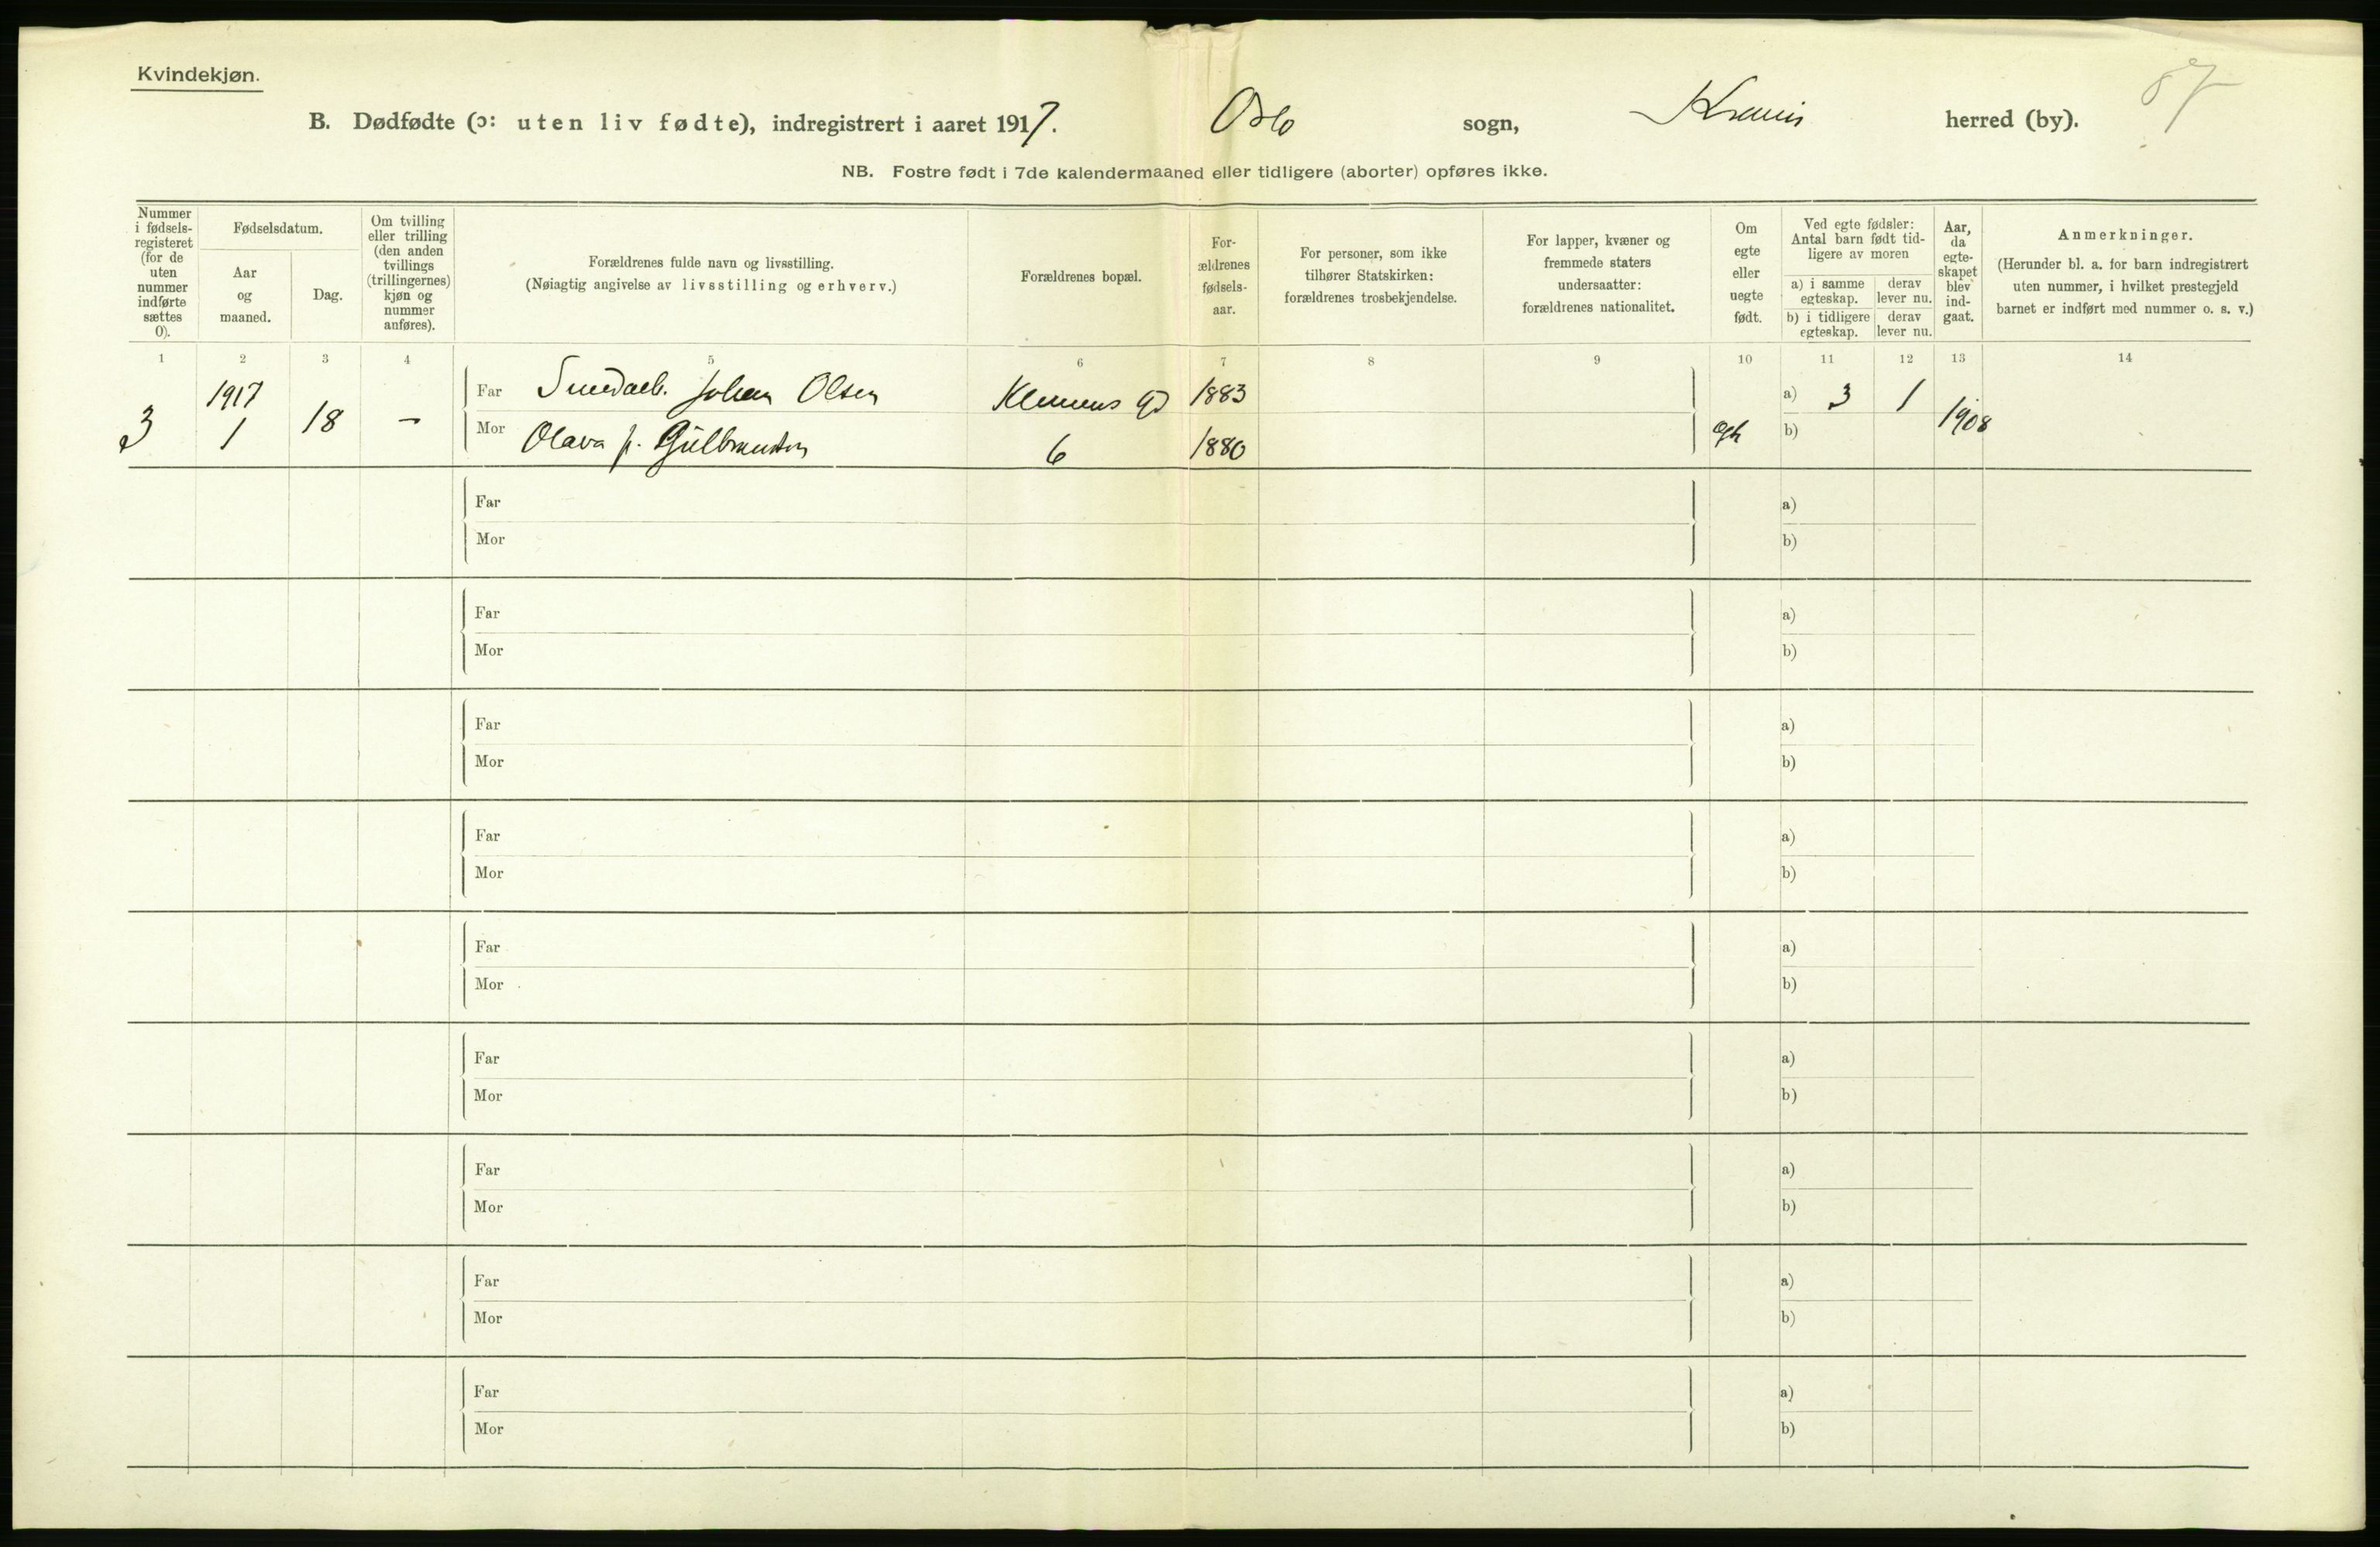 Kvindekjøn.
87
B. Dødfødte (ɔ: uten liv fødte), indregistrert i aaret 1917. Oslo sogn, Krania herred (by).
NB. Fostre født i 7de kalendermaaned eller tidligere (aborter) opføres ikke.
Nummer
i fødsels-
registeret
(for de
uten
nummer
indførte
sættes
0).
Fødselsdatum.
Aar
og
maaned.
Dag.
Om tvilling
eller trilling
(den anden
tvillings
(trillingernes)
kjøn og
nummer
anføres).
Forældrenes fulde navn og livsstilling.
(Nøiagtig angivelse av livsstilling og erhverv.)
Forældrenes bopæl.
For-
ældrenes
fødsels-
aar.
For personer, som ikke
tilhører Statskirken:
forældrenes trosbekjendelse.
For lapper, kvæner og
fremmede staters
undersaatter:
forældrenes nationalitet.
Om
egte
eller
uegte
født.
Ved egte fødsler:
Antal barn født tid-
ligere av moren
a) i samme
egteskap.
derav
lever nu.
b) i tidligere
egteskap.
derav
lever nu.
Aar,
da
egte-
skapet
blev
ind-
gaat.
Anmerkninger.
(Herunder bl. a. for barn indregistrert
uten nummer, i hvilket prestegjeld
barnet er indført med nummer o. s. v.)
1 2 3 4 5 6 7 8 9 10 11 12 13 14
1917 Far Smedarb. Johan Olsen Klemens Gd 1883 a) 3 1
3 1 18 – Mor Olava f. Gulbrandsen 6 1880 b) 1908
Far a)
Mor b)
Far a)
Mor b)
Far a)
Mor b)
Far a)
Mor b)
Far a)
Mor b)
Far a)
Mor b)
Far a)
Mor b)
Far a)
Mor b)
Far a)
Mor b)